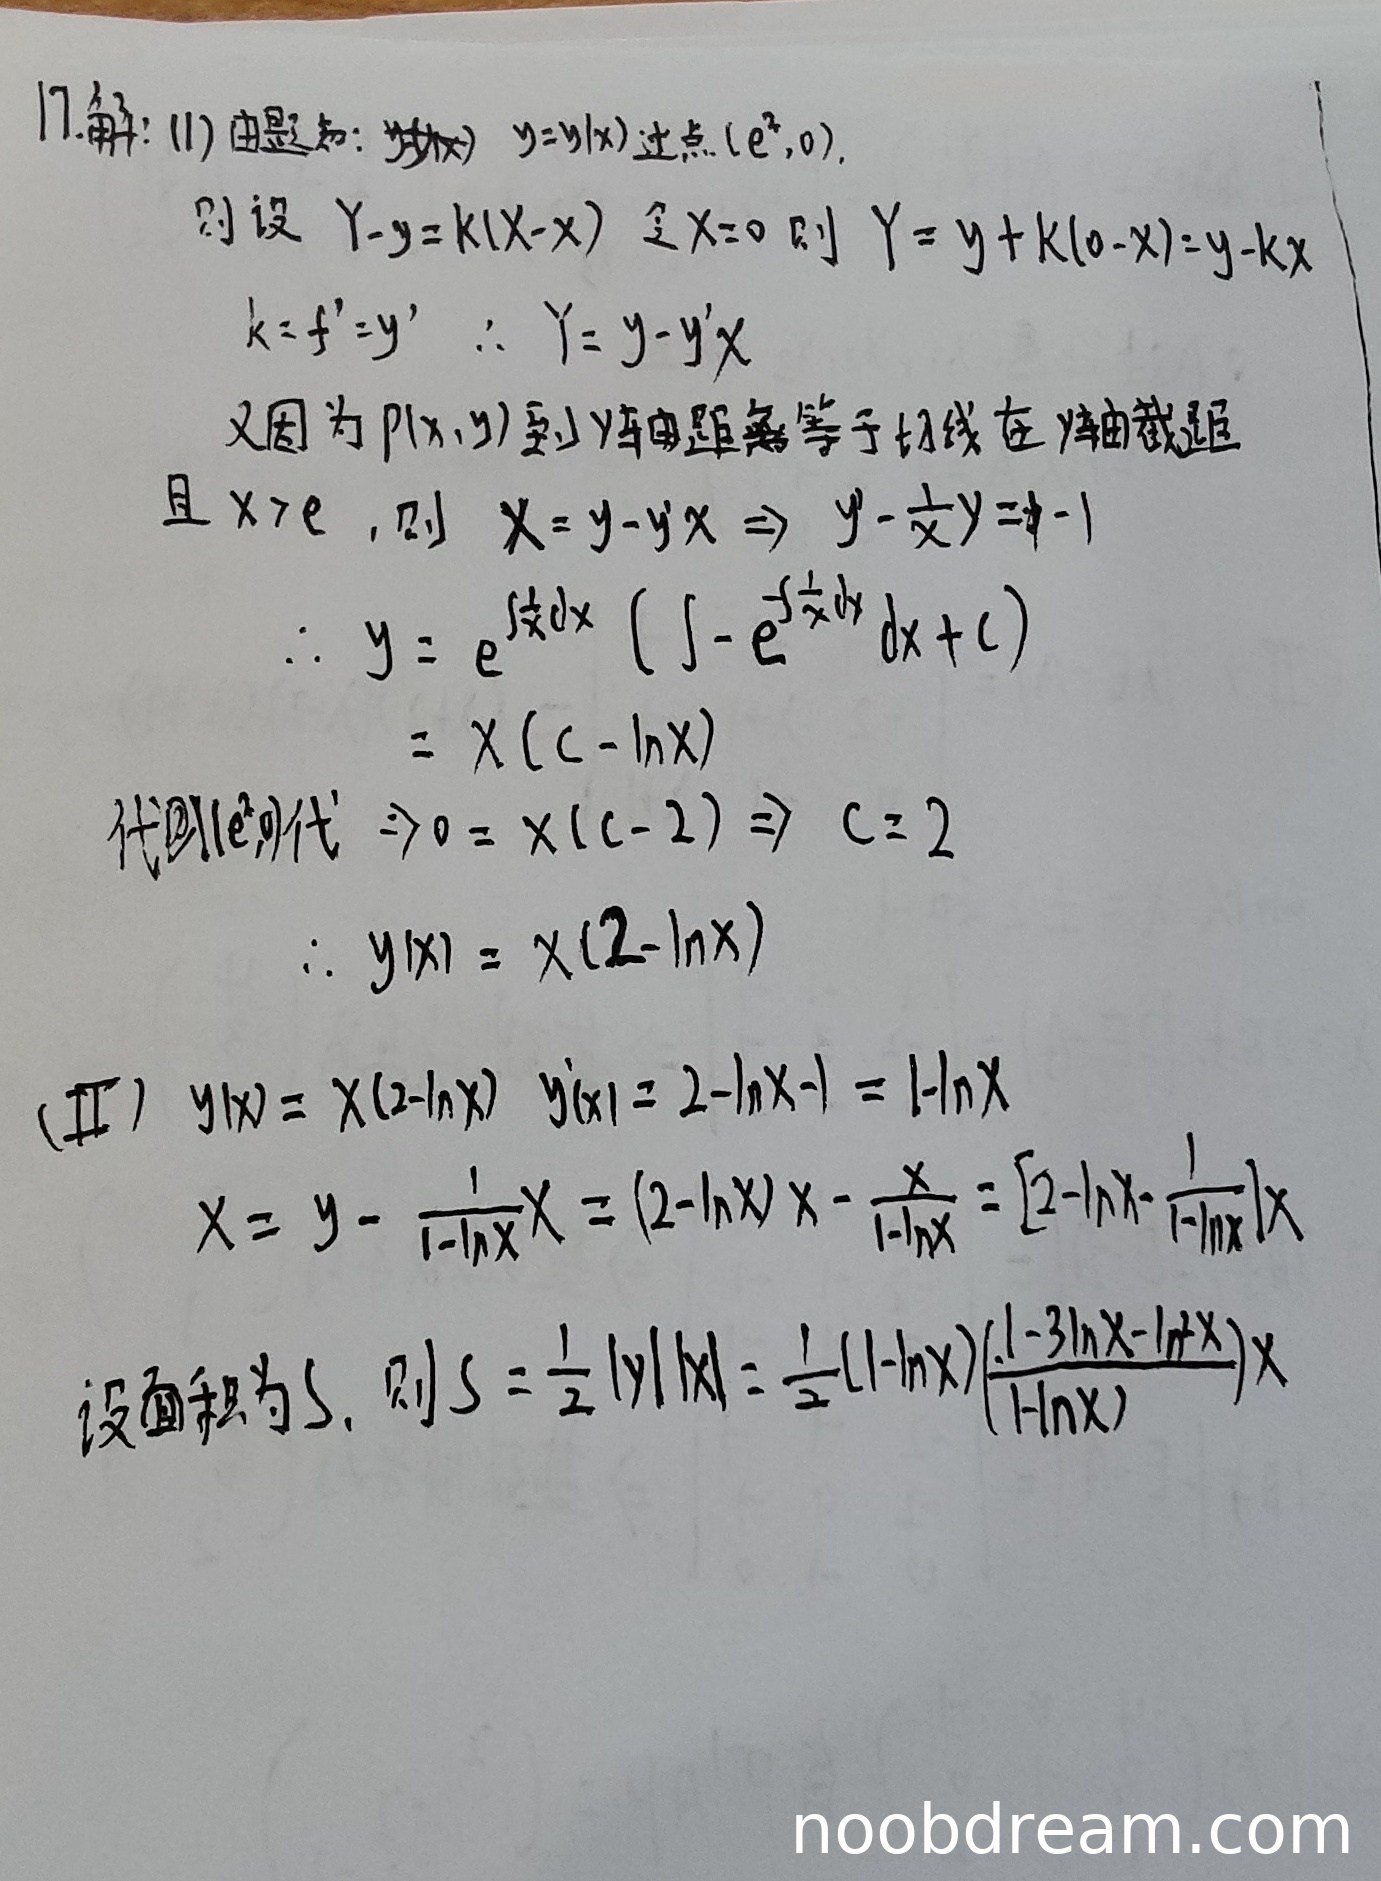 17.解: (1) 由题知: y=y(x) 过点(e²,0).
则设 Y-y=k(X-x) 令X=0 则 Y=y+k(0-x)=y-kx
k=f'=y' ∴ Y=y-y'x
又因为 P(x,y)到y轴距离等于切线在y轴截距
且 x>e ,则 x=y-y'x ⇒ y'-1/x y=-1
∴ y = e^{∫1/x dx} (∫-e^{-∫1/x dx} dx+C)
= x(C-lnx)
代回(e²,0)代 ⇒0=x(C-2)⇒ C=2
∴ y(x) = x(2-lnx)
(Ⅱ) y(x)= x(2-lnx) y'(x)=2-lnx-1 = 1-lnx
X= y - 1/(1-lnx) x = (2-lnx)x - x/(1-lnx) = [2-lnx-1/(1-lnx)]x
设面积为S, 则S = 1/2 |y||x| = 1/2 (1-lnx)((1-3lnx-ln²x)/(1-lnx))x
noobdream.com